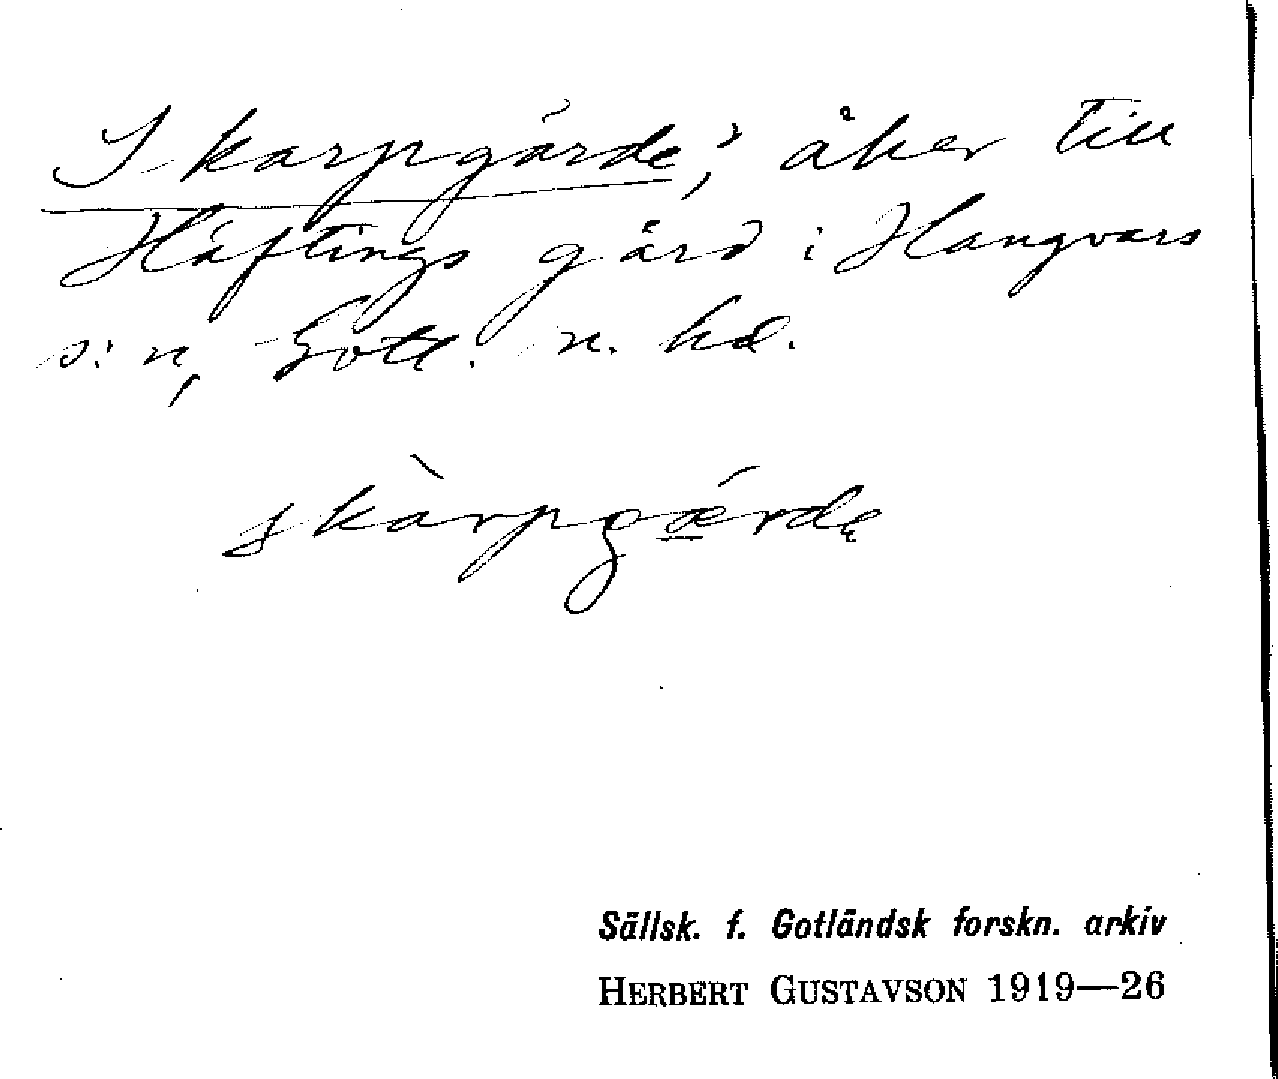 Skarpgärde, åker till
Häftings gård i Hangvars
s:n, Gotl. n. hd.
skàrpgǽrdę
Sällsk. f. Gotländsk forskn. arkiv
HERBERT GUSTAVSON 1919—26